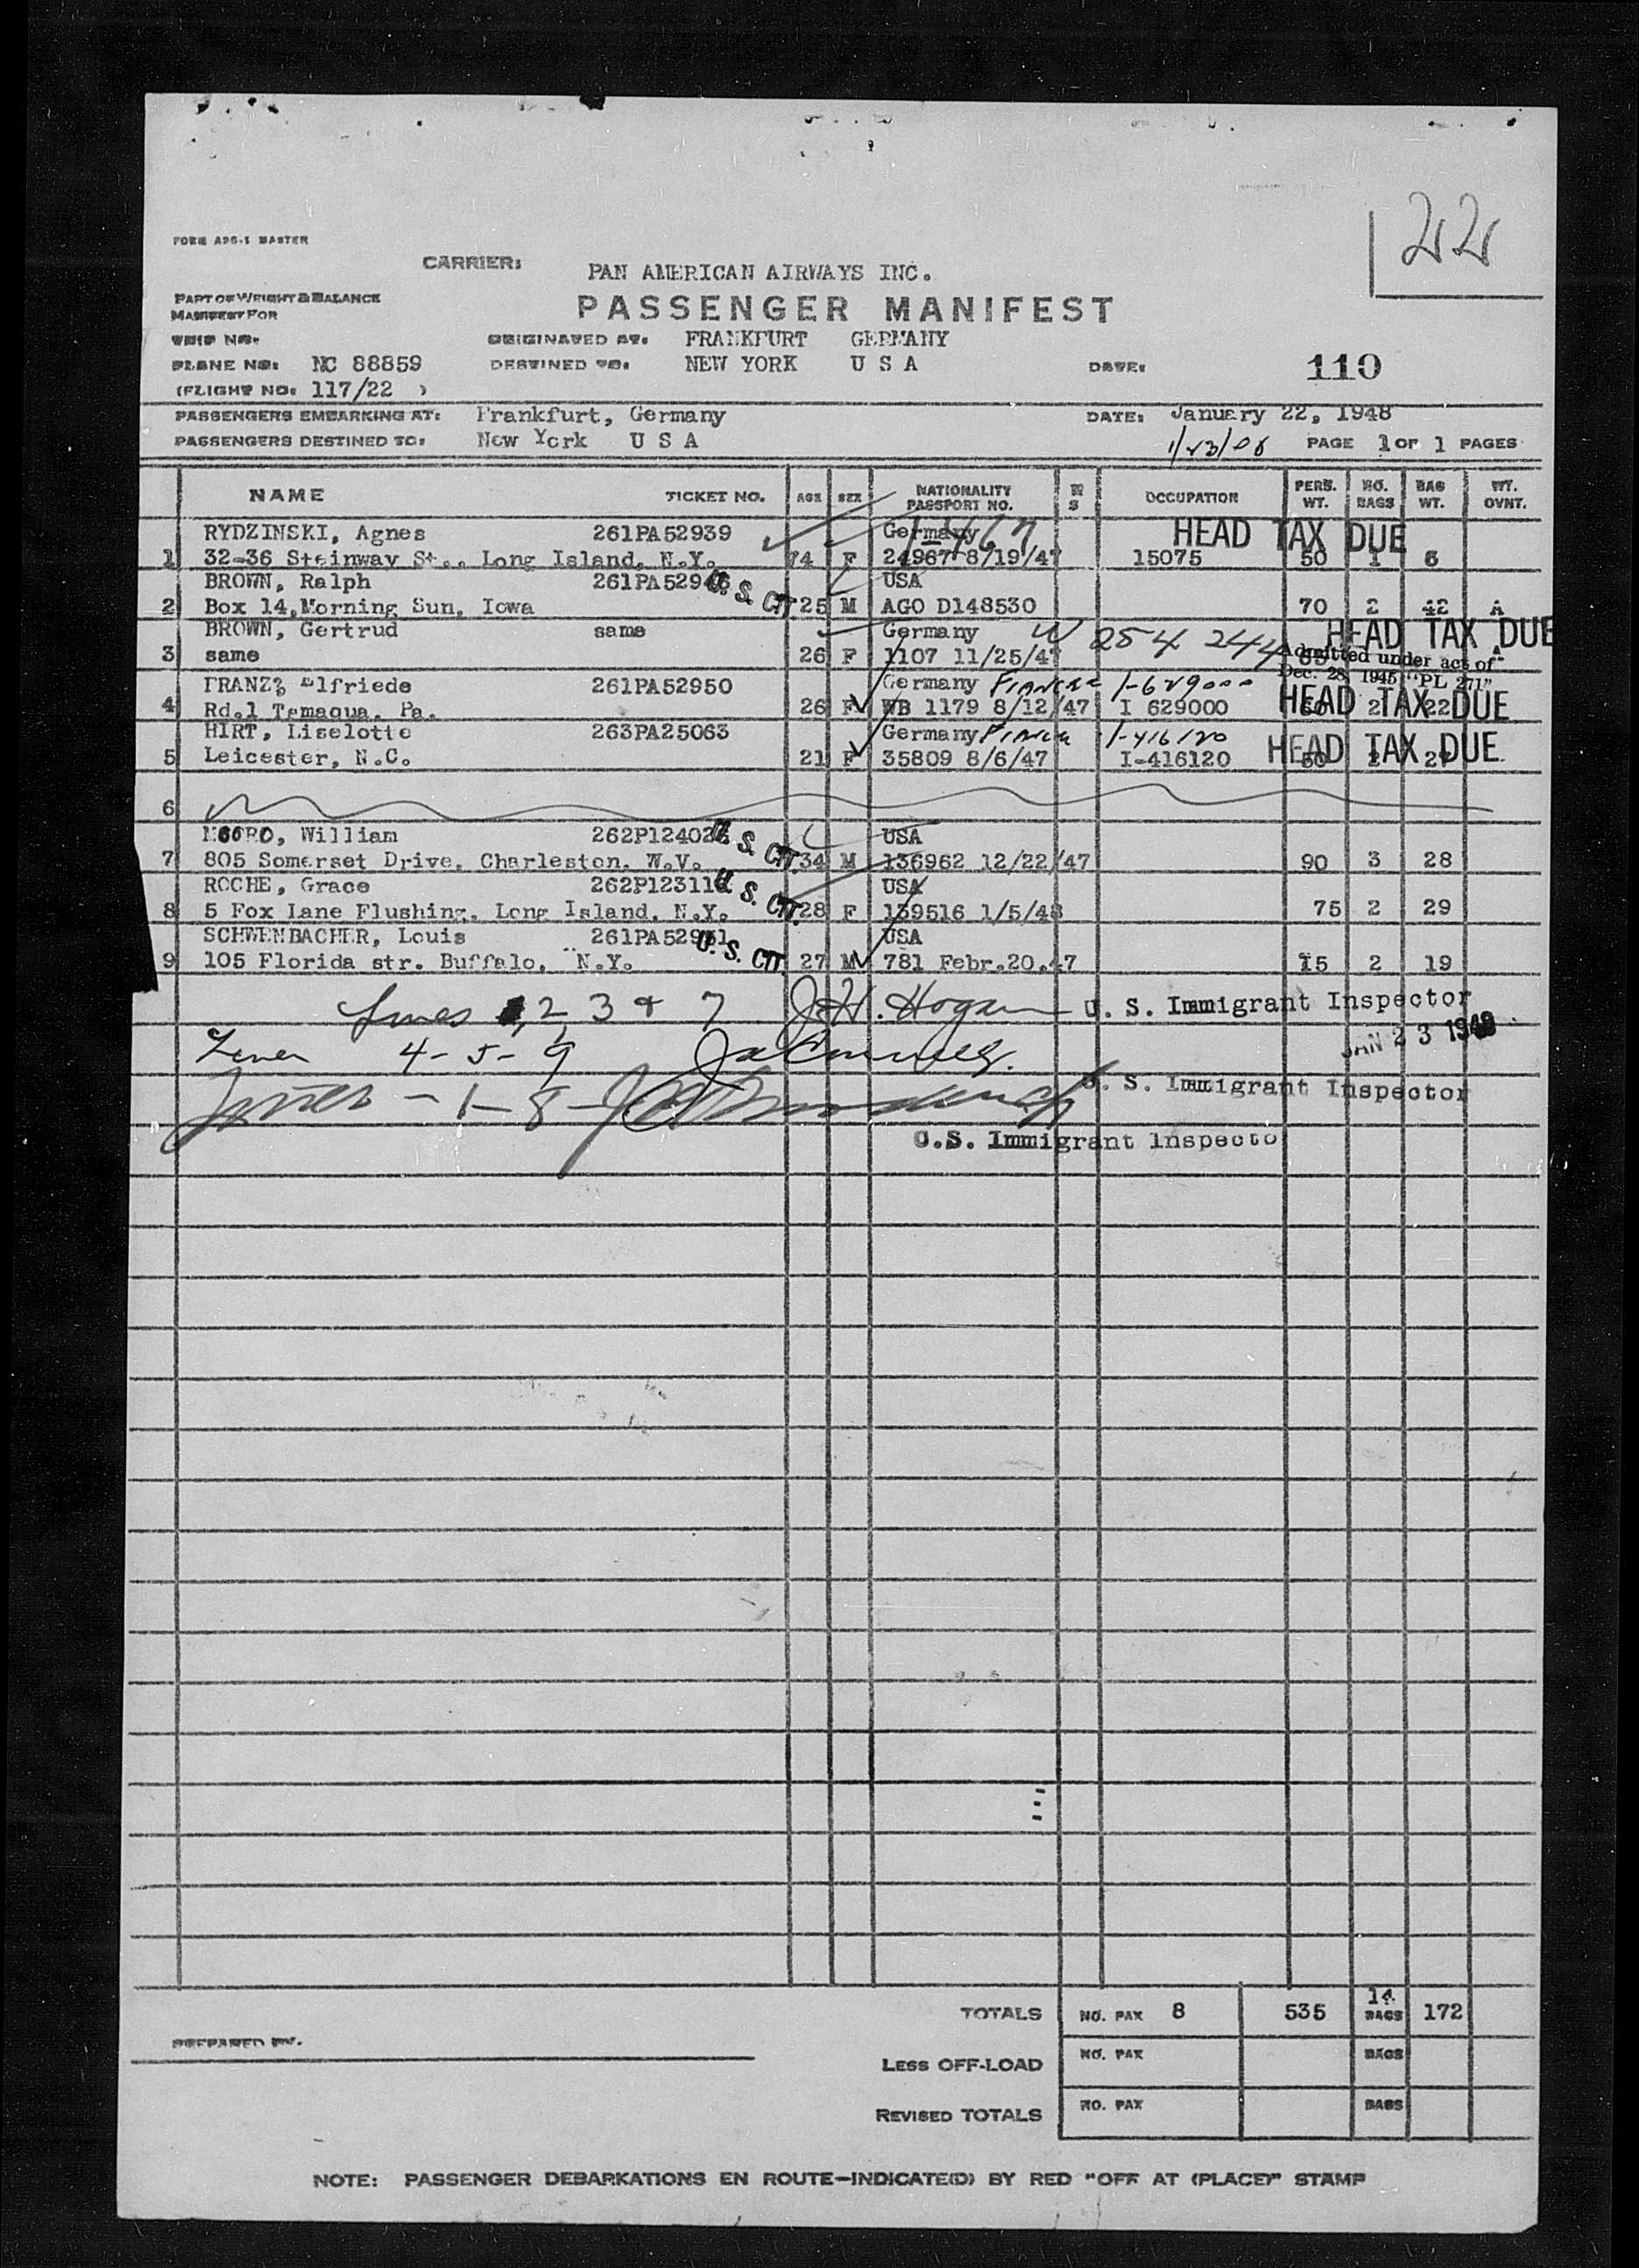 22
FORM ADG-1 MASTER
CARRIER: PAN AMERICAN AIRWAYS INC.
PART OF WEIGHT & BALANCE
MANIFEST FOR
PASSENGER MANIFEST
TRIP NO.
ORIGINATED AT: FRANKFURT GERMANY
PLANE NO: NC 88859
DESTINED TO: NEW YORK U S A
DATE: 110
(FLIGHT NO: 117/22 )
PASSENGERS EMBARKING AT: Frankfurt, Germany DATE: January 22, 1948
PASSENGERS DESTINED TO: New York U S A PAGE 1 OF 1 PAGES
NAME TICKET NO. AGE SEX NATIONALITY PASSPORT NO. OCCUPATION PERS. WT. NO. BAGS BAG WT. WT. OVNT.
RYDZINSKI, Agnes 261PA52939 Germany HEAD TAX DUE
1 32-36 Steinway St., Long Island, N.Y. 74 F 24967 8/19/47 15075 50 1 6
BROWN, Ralph U.S. CIT. USA
2 Box 14,Morning Sun, Iowa 25 M AGO D148530 70 2 42 A
BROWN, Gertrud same Germany 254 244 HEAD TAX DUE
3 same 26 F 1107 11/25/47 Admitted under act of
Dec. 28, 1945 "PL 271"
FRANZ, Elfriede 261PA52950 Germany Fiancee I-629000
4 Rd.1 Temaqua. Pa. 26 F WB 1179 8/12/47 I 629000 HEAD TAX DUE 2 22
HIRT, Liselotte 263PA25063 Germany I-416120
5 Leicester, N.C. 21 F 35809 8/6/47 I-416120 HEAD TAX DUE
6
William U.S. CIT. USA
7 805 Somerset Drive, Charleston, W.V. 34 M 136962 12/22/47 90 3 28
ROCHE, Grace U.S. CIT. USA
8 5 Fox Lane Flushing, Long Island, N.Y. 28 F 139516 1/5/48 75 2 29
SCHWENBACHER, Louis U.S. CIT. USA
9 105 Florida str. Buffalo, N.Y. 27 M 781 Febr.20.47 15 2 19
Lines 2, 3 & 7 J.H. Hogan U. S. Immigrant Inspector
JAN 23 1948
Lines 4-5-9
U. S. Immigrant Inspector
Lines - 1-8-
U.S. Immigrant Inspecto
TOTALS NO. PAX 8 535 14 BAGS 172
PREPARED BY.
LESS OFF-LOAD NO. PAX BAGS
REVISED TOTALS NO. PAX BAGS
NOTE: PASSENGER DEBARKATIONS EN ROUTE—INDICATE(D) BY RED "OFF AT (PLACE)" STAMP